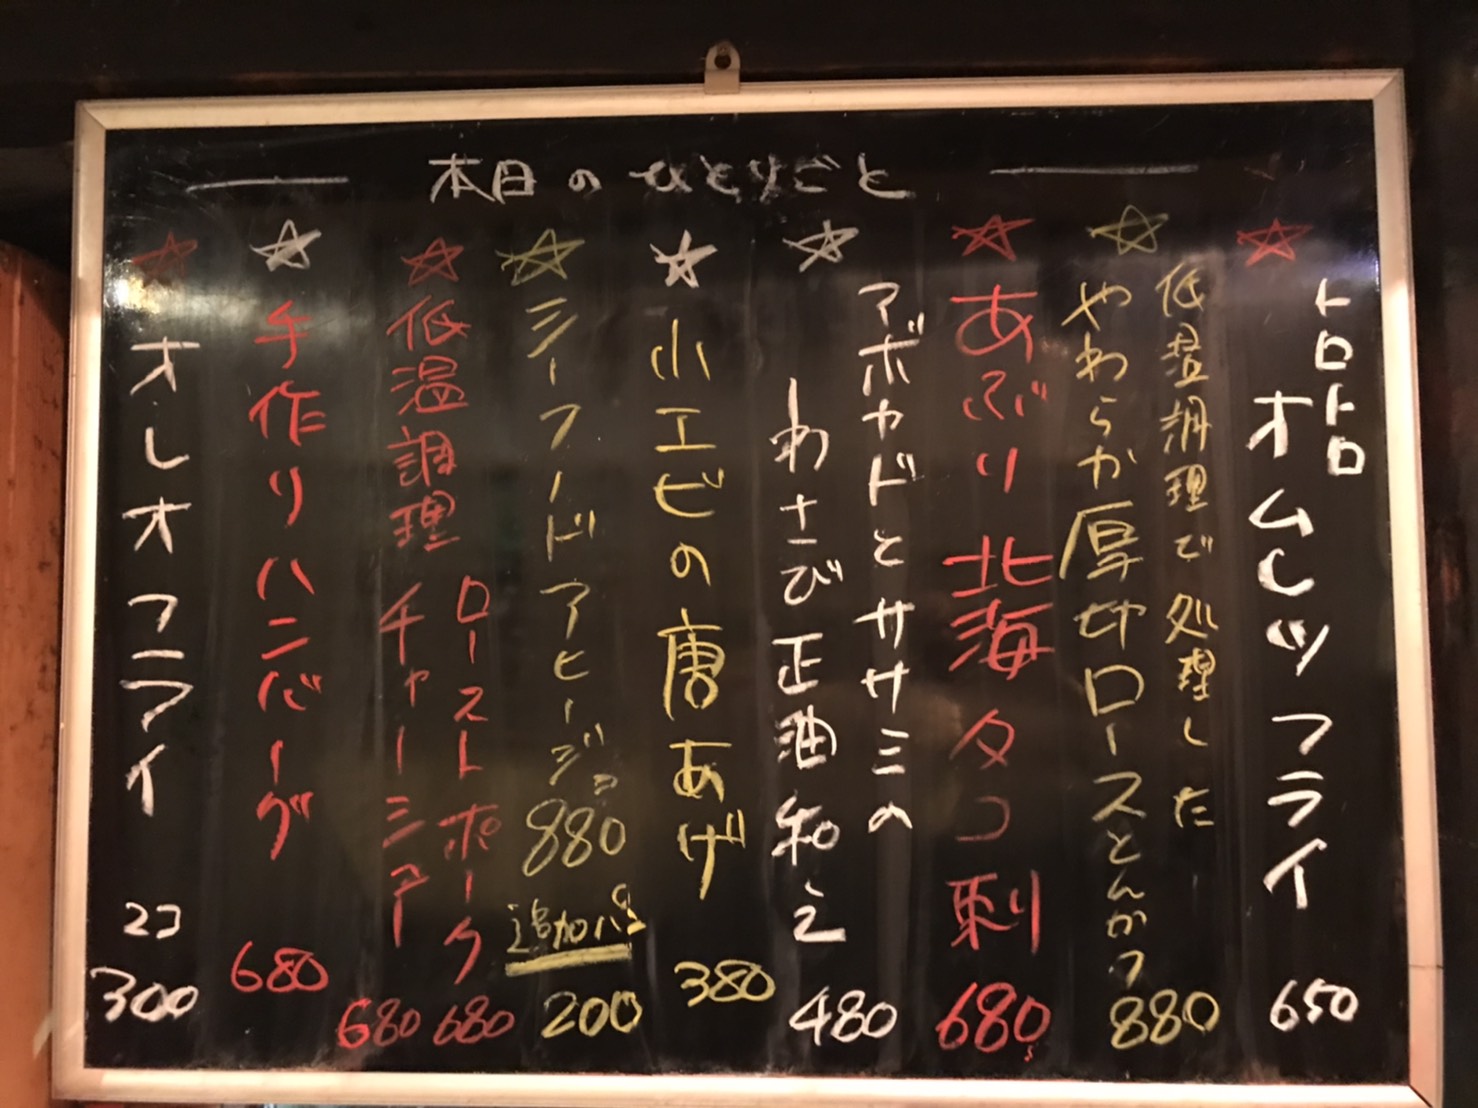 本日のひとりごと
☆
トロトロ
オムレツフライ
650
☆
低温調理で処理した
やわらか厚切ロースとんかつ
880
☆
あぶり北海タコ刺
680
☆
アボカドとササミの
わさび正油和え
480
☆
小エビの唐あげ
380
☆
シーフードアヒージョ
880
追加パン
200
☆
低温調理
ローストポーク
680
チャーシュー
680
☆
手作りハンバーグ
680
☆
オレオフライ
2コ
300